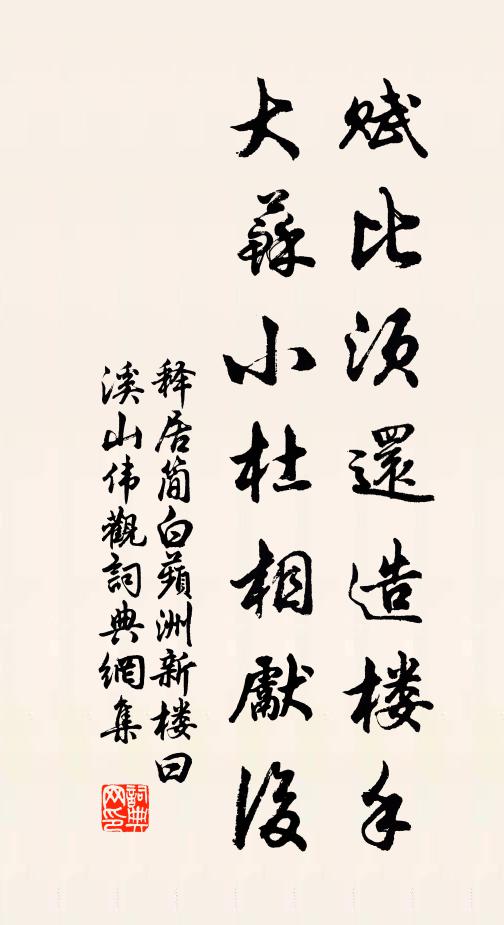 赋比须還造楼手
大蘇小杜相獻後
释居简白蘋洲新楼曰
溪山伟觀詞典網集
詞典网印